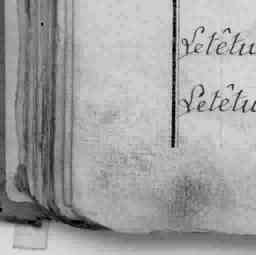 Letêtu
Letêtu